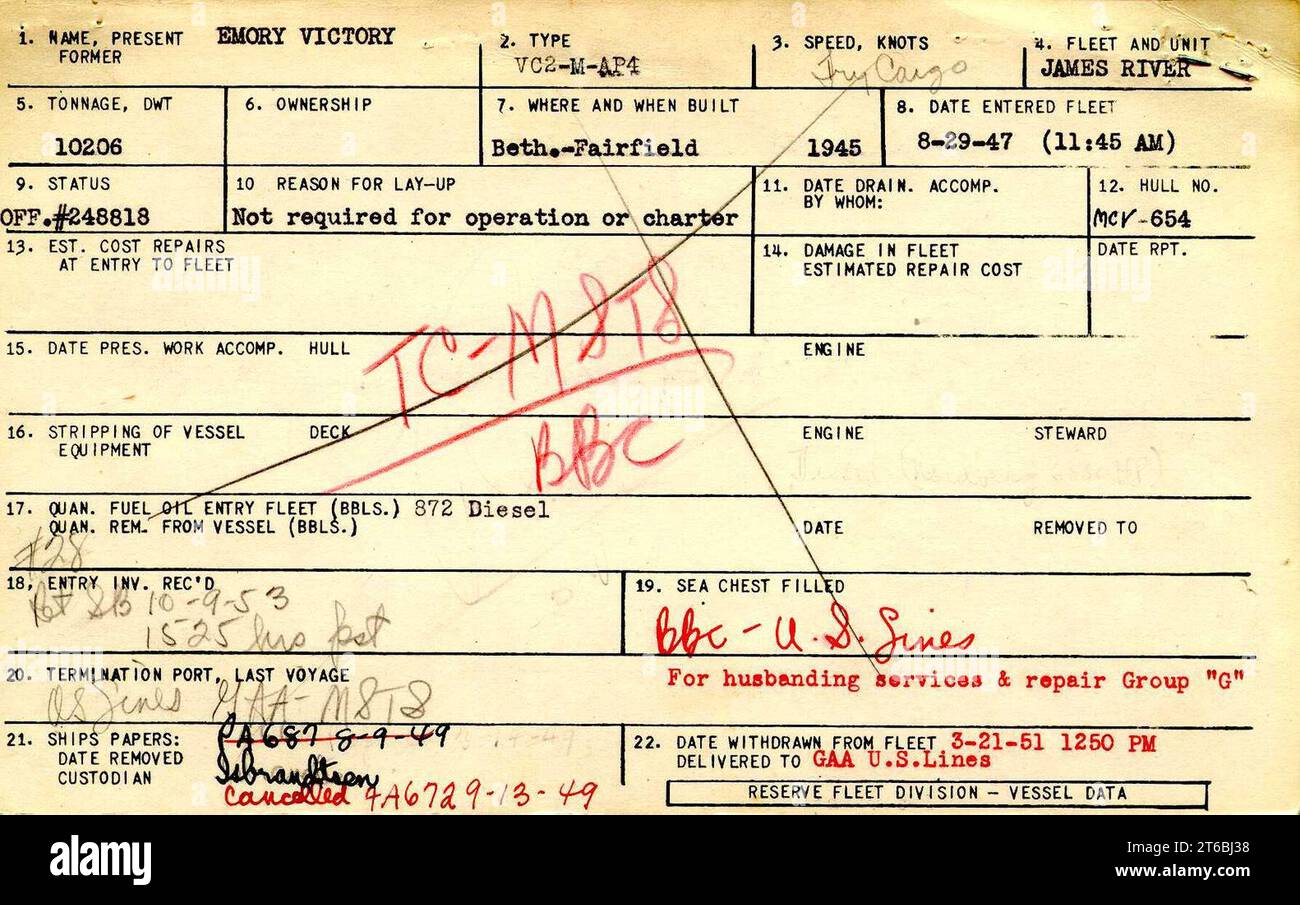 1. NAME, PRESENT EMORY VICTORY
FORMER
2. TYPE
VC2-M-AP4
3. SPEED, KNOTS
Cargo
4. FLEET AND UNIT
JAMES RIVER
5. TONNAGE, DWT
10206
6. OWNERSHIP
7. WHERE AND WHEN BUILT
Beth.-Fairfield 1945
8. DATE ENTERED FLEET
8-29-47 (11:45 AM)
9. STATUS
OFF.#248818
10 REASON FOR LAY-UP
Not required for operation or charter
11. DATE DRAIN. ACCOMP.
BY WHOM:
12. HULL NO.
MCV-654
13. EST. COST REPAIRS
AT ENTRY TO FLEET
14. DAMAGE IN FLEET
ESTIMATED REPAIR COST
DATE RPT.
TC-MSTS
BBC
15. DATE PRES. WORK ACCOMP. HULL ENGINE
16. STRIPPING OF VESSEL DECK ENGINE STEWARD
EQUIPMENT
17. QUAN. FUEL OIL ENTRY FLEET (BBLS.) 872 Diesel
QUAN. REM. FROM VESSEL (BBLS.) DATE REMOVED TO
#28
18, ENTRY INV. REC'D
SB 10-9-53
1525 hrs pst
19. SEA CHEST FILLED
BBC - U.S. Lines
For husbanding services & repair Group "G"
20. TERMINATION PORT, LAST VOYAGE
US Lines GAA-MSTS
21. SHIPS PAPERS: PA687 8-9-49
DATE REMOVED Isbrandtsen
CUSTODIAN
Cancelled PA672 9-13-49
22. DATE WITHDRAWN FROM FLEET 3-21-51 1250 PM
DELIVERED TO GAA U.S.Lines
RESERVE FLEET DIVISION - VESSEL DATA
alamy
Image ID: 2T6BJ38
www.alamy.com